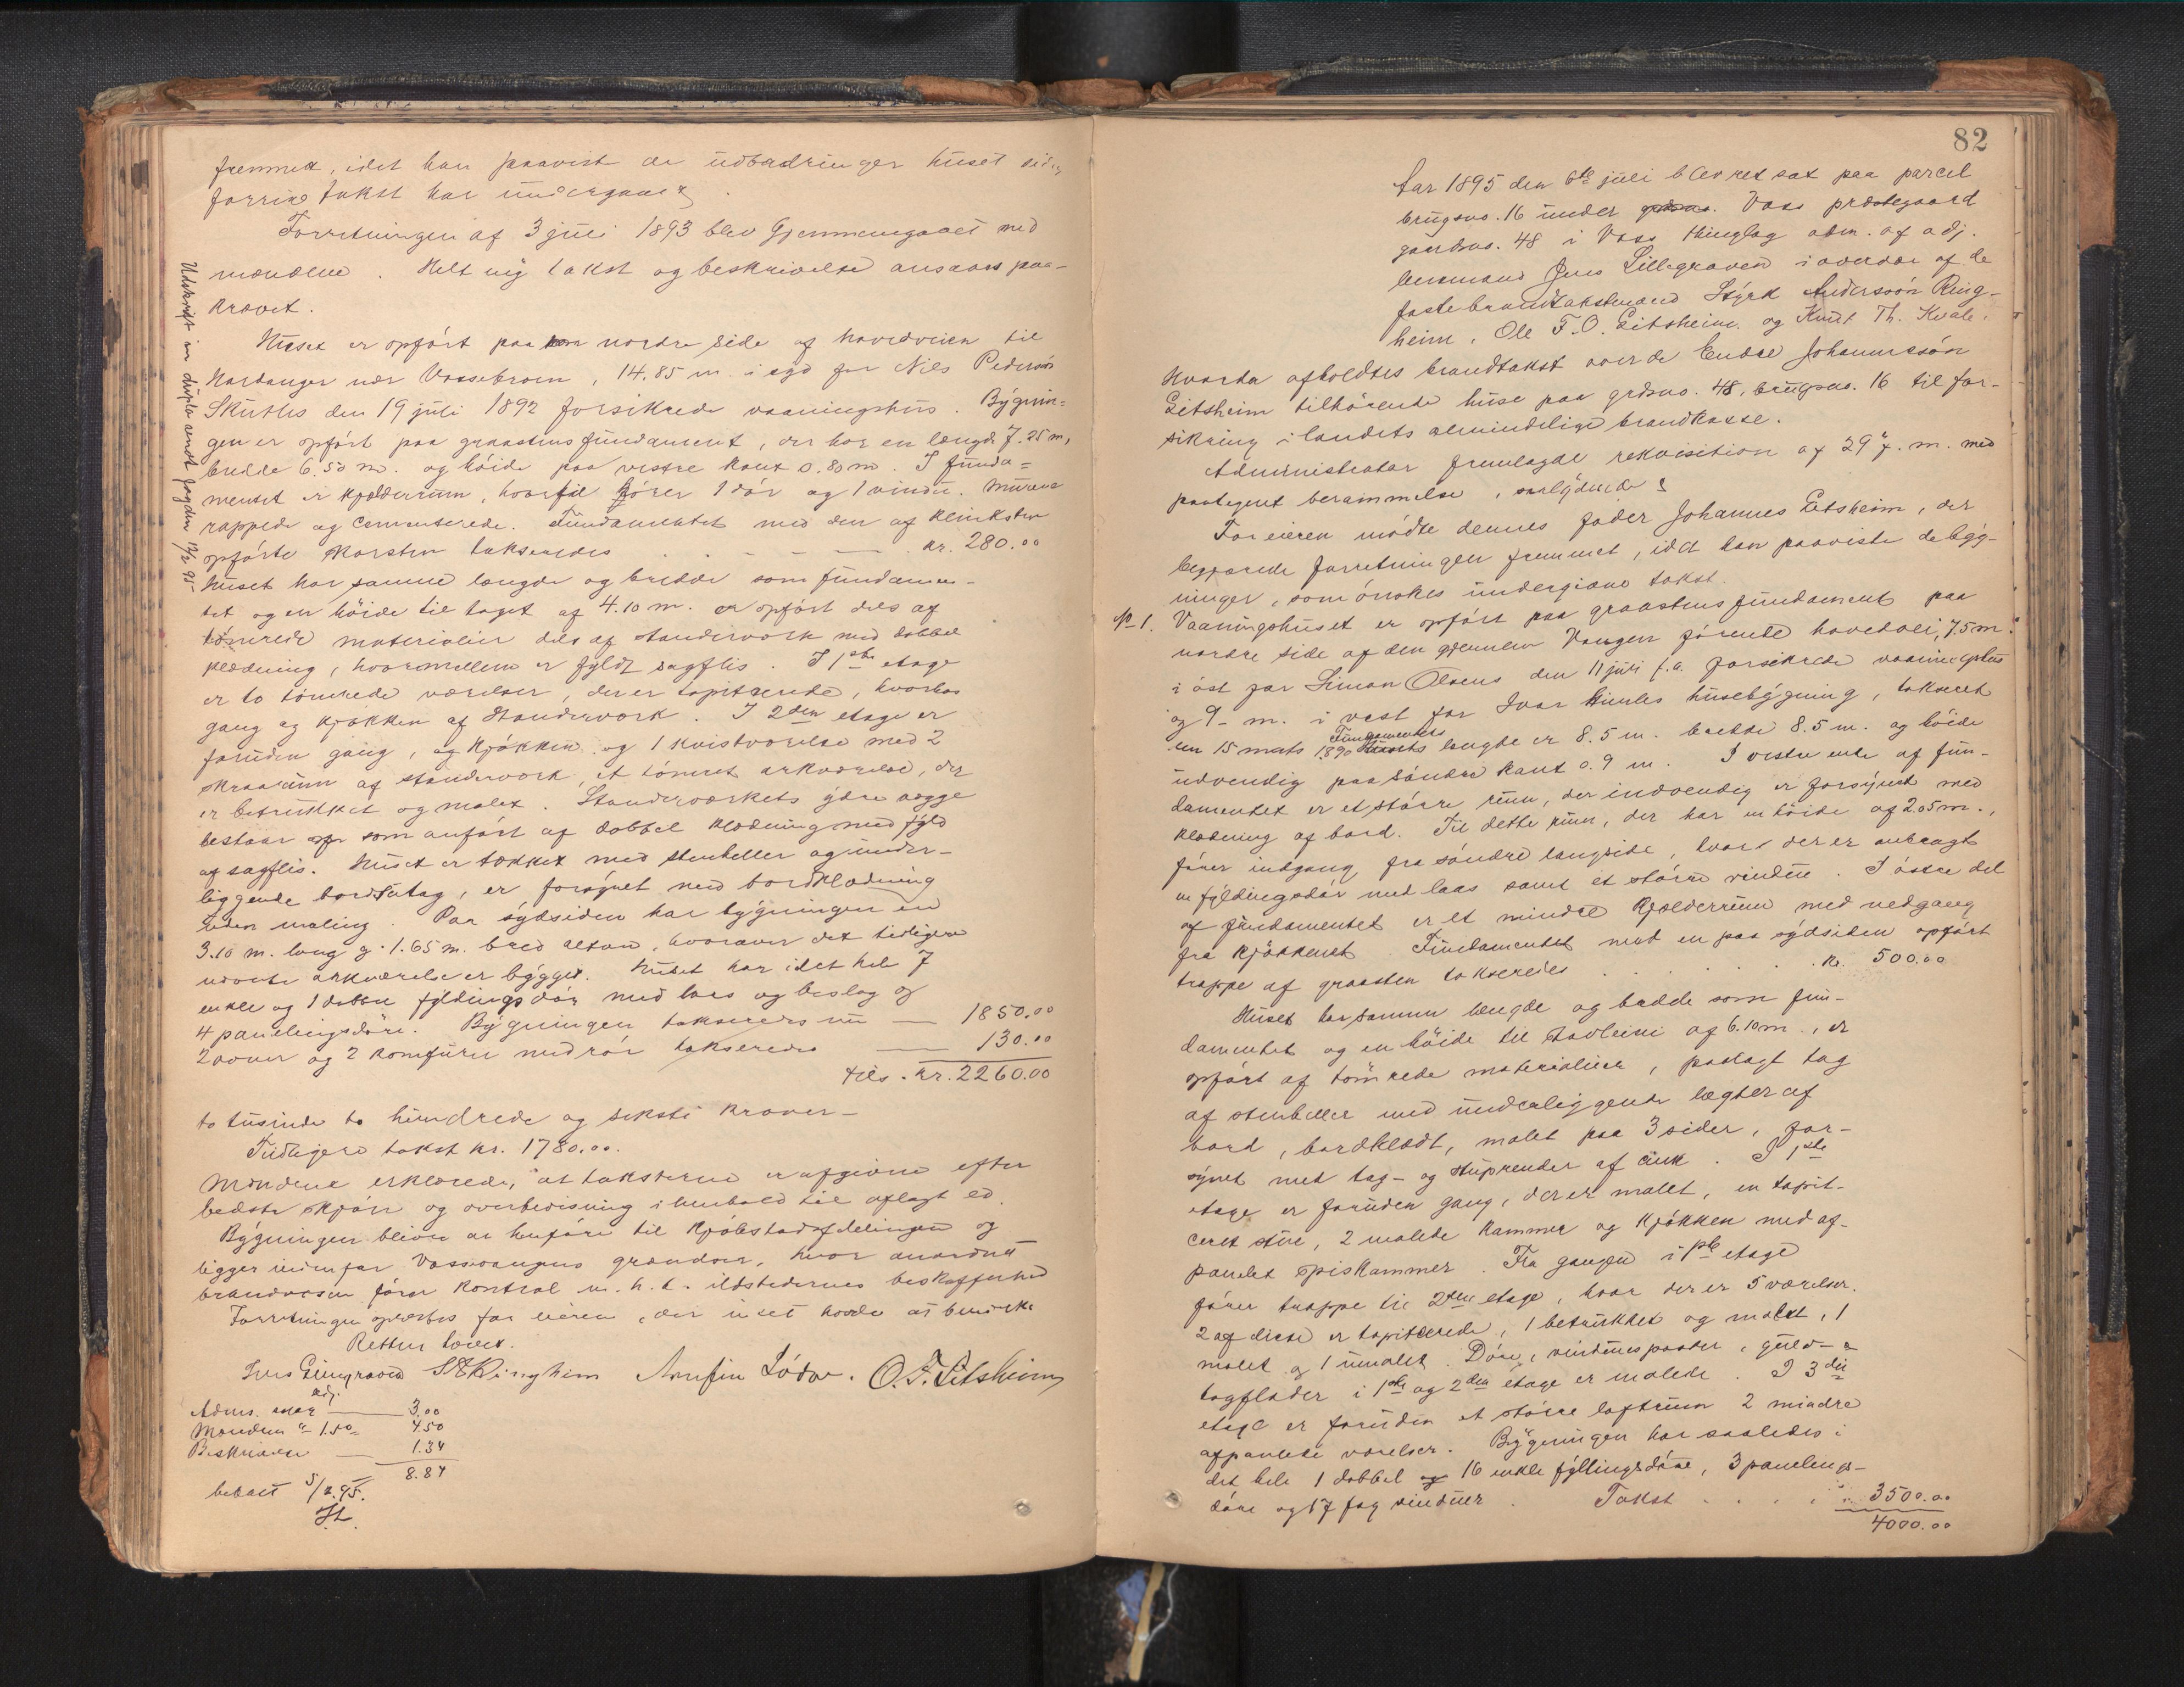 fremmet, idet han paaviste de udbedringer huset siden
forrige takst har undergaaet.
Forretningen af 3 juli 1893 blev gjennemgaaet med
mændene. Helt ny takst og beskrivelse ansaaes paa-
krævet.
Huset er opført paa nordre side af hovedveien til
Hardanger nær Vossebroen, 14.85 m. i syd for Nils Pedersøn
Skutles den 19 juli 1892 forsikrede vaaningshus. Bygnin-
gen er opført paa graastensfundament, der har en længde 7.25 m,
bredde 6.50 m. og høide paa vestre kant 0.80 m. I funda-
mentet er kjælderrum, hvortil fører 1 dør og 1 vindu. Murene
rappede og cementerede. Fundamentet med den af klinksten
opførte skorsten takseredes kr. 280.00
Huset har samme længde og bredde som fundamen-
tet og en høide til taget af 4.10 m. er opført dels af
tømrede materialier dels af standerværk med dobbel
klædning, hvormellem er fyldt sagflis. I 1ste etage
er to tømrede værelser, der er tapitserede, hvorhos
gang og kjøkken af standerværk. I 2den etage er
foruden gang, og kjøkken og 1 kvistværelse med 2
skraarum af standerværk, et tømret arkværelse, der
er betrukket og malet. Standerværkets ydre vægge
bestaar som anført af dobbel klædning med fyld
af sagflis. Huset er tækket med stenheller og under-
liggende bordsutag, er forsynet med bordklædning
uden maling. Paa sydsiden har bygningen en
3.10 m. lang og 1.65 m. bred altan, hvorover det tidligere
nævnte arkværelse er bygget. Huset har i det hele 7
enkle og 1 dobbel fyldingsdør med laas og beslag og
4 panelingsdøre. Bygningen takseredes nu — 1850.00
2 ovner og 2 komfurer med rør takseredes — 130.00
tils. kr. 2260.00
to tusinde to hundrede og seksti kroner —
Tidligere takst kr. 1780.00.
Mændene erklærede, at taksterne er afgivne efter
bedste skjøn og overbevisning i henhold til aflagt ed.
Bygningen bliver at henføre til kjøbstadafdelingen og
ligger indenfor Vossevangens grændser, hvor anordnet
brandvæsen fører kontrol m. h. t. ildstedernes beskaffenhed
Forretningen oplæstes for eieren, der intet havde at bemærke
Retten hævet.
Jens Lillegraven S A Ringheim Arnfin Lødve. O. F. Litsheim
adj.
Adms. — 3.00
Mændene a 1.50 4.50
Beskrivelse — 1.34
8.84
betalt 5/8.95.
JL
Udskrift in duplo sendt fogden 12/8 95
82
Aar 1895 den 6te juli blev ret sat paa parcel
brugsno. 16 under Voss prestegaard
gaardsno. 48 i Voss thinglag adm. af adj.
lensmand Jens Lillegraven i overvær af de
faste brandtakstmænd Styrk Anderssøn Ring-
heim, Ole F. O. Litsheim og Knut Th. Kvale.
Hvorda afholdtes brandtakst over de Endre Johannessøn
Litsheim tilhørende huse paa grdsno. 48, brugsno. 16 til for-
sikring i landets almindelige brandkasse.
Administrator fremlagde rekvisition af 29 f. m. med
paategnet berammelse, saalydende:
For eieren mødte dennes fader Johannes Litsheim, der
begjærede forretningen fremmet, idet han paaviste de byg-
ninger, som ønskes undergivne takst.
No 1. Vaaningshuset er opført paa graastensfundament paa
nordre side af den gjennem Vangen førende hovedvei, 7.5 m.
i øst for Simon Olsens den 11 juli f. a. forsikrede vaaningshus
og 9 - m. i vest for Ivar Himles husebygning, takseret
den 15 marts 1890 Fundamentets længde er 8.5 m. bredde 8.5 m. og høide
udvendig paa søndre kant 0.9 m. I vestre ende af fun-
damentet er et større rum, der indvendig er forsynet med
klædning af bord. Til dette rum, der har en høide af 2.05 m.,
fører indgang fra søndre langside, hvor der er anbragt
en fyldingsdør med laas samt et større vindu. I østre del
af fundamentet er et mindre kjælderrum med nedgang
fra kjøkkenet. Fundamentet med en paa sydsiden opført
trappe af graasten takseredes kr. 500.00
Huset har samme længde og bredde som fun-
damentet og en høide til stavleine af 6.10 m., er
opført af tømrede materialier, paalagt tag
af stenheller med underliggende lægter af
bord, bordklædt, malet paa 3 sider, for-
synet med tag- og stuprender af sink. I 1ste
etage er foruden gang, der er malet, en tapit-
ceret stue, 2 malede kammer og kjøkken med af-
panelet spiskammer. Fra gangen i 1ste etage
fører trappe til 2den etage, hvor der er 5 værelser.
2 af disse er tapitserede, 1 betrukket og malet, 1
malet og 1 umalet. Døre, vinduesposter, gulv- og
tagflader i 1ste og 2den etage er malede. I 3die
etage er foruden et større loftrum 2 mindre
afpanelede værelser. Bygningen har saaledes i
det hele 1 dobbel 16 enkle fyllingsdøre, 3 panelings-
døre og 17 fag vinduer. Takst 3500.00
4000.00